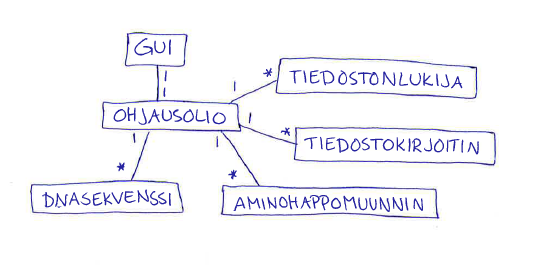 GUI
1
1
OHJAUSOLIO
1
*
TIEDOSTONLUKIJA
1
*
TIEDOSTOKIRJOITIN
1
*
DNASEKVENSSI
1
*
AMINOHAPPOMUUNNIN